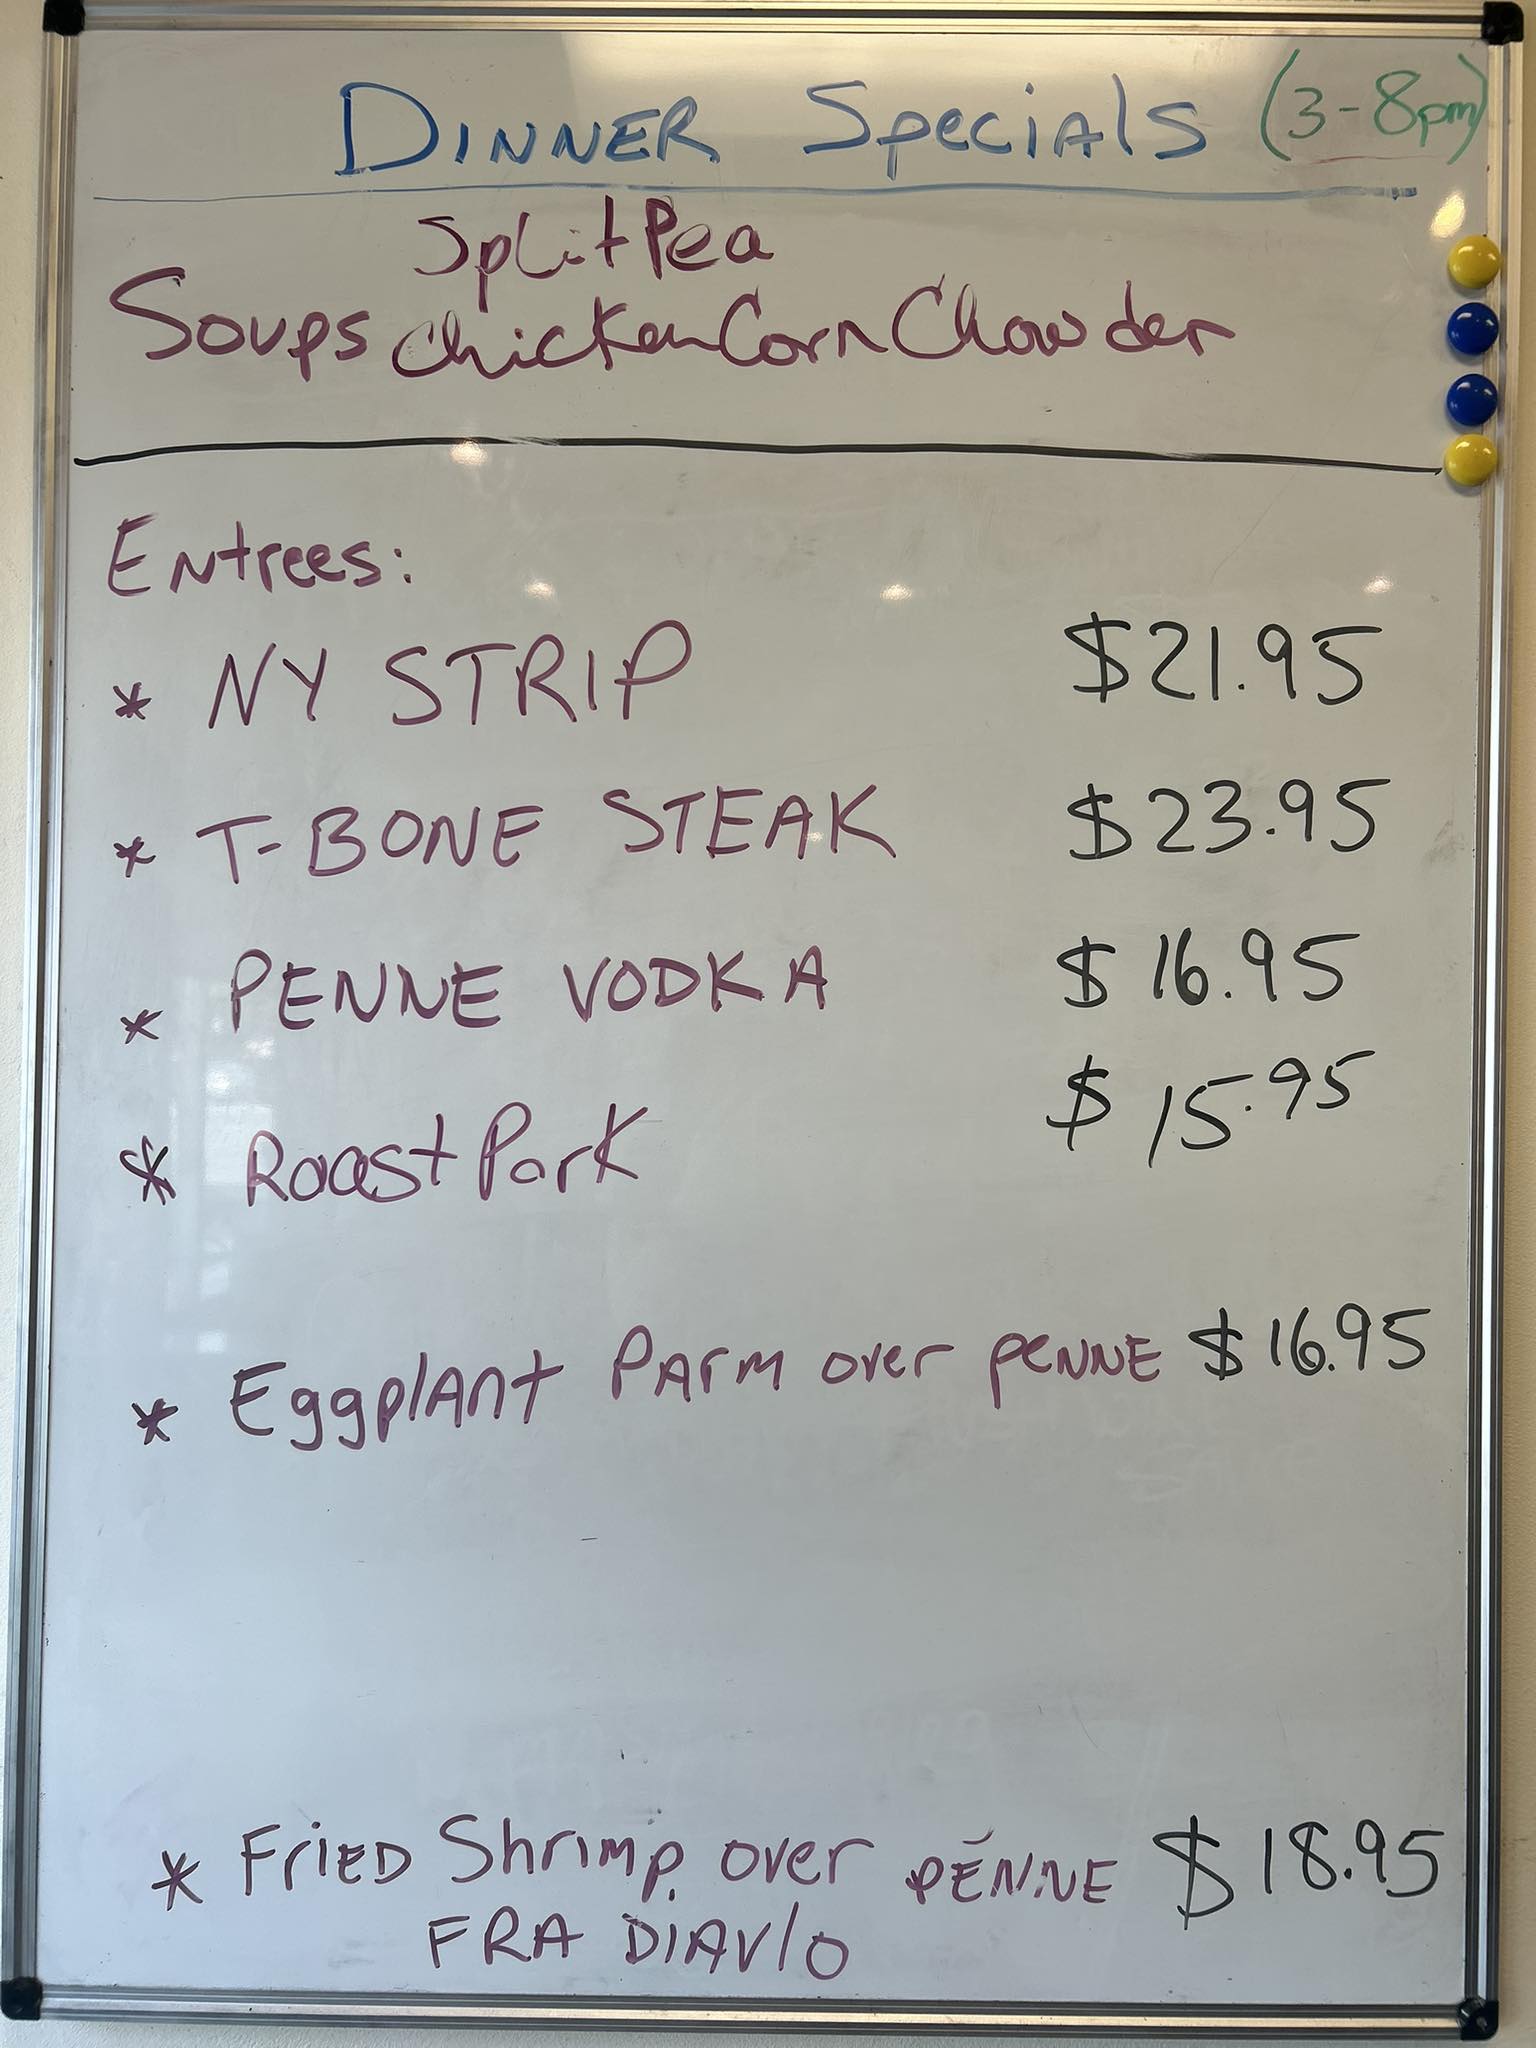 DINNER Specials (3-8pm)
Split Pea
Soups Chicken Corn Chowder
Entrees:
* NY STRIP $21.95
* T-BONE STEAK $23.95
* PENNE VODKA $16.95
* Roast Pork $15.95
* Eggplant Parm over penne $16.95
* Fried Shrimp over PENNE $18.95
FRA DIAVlO